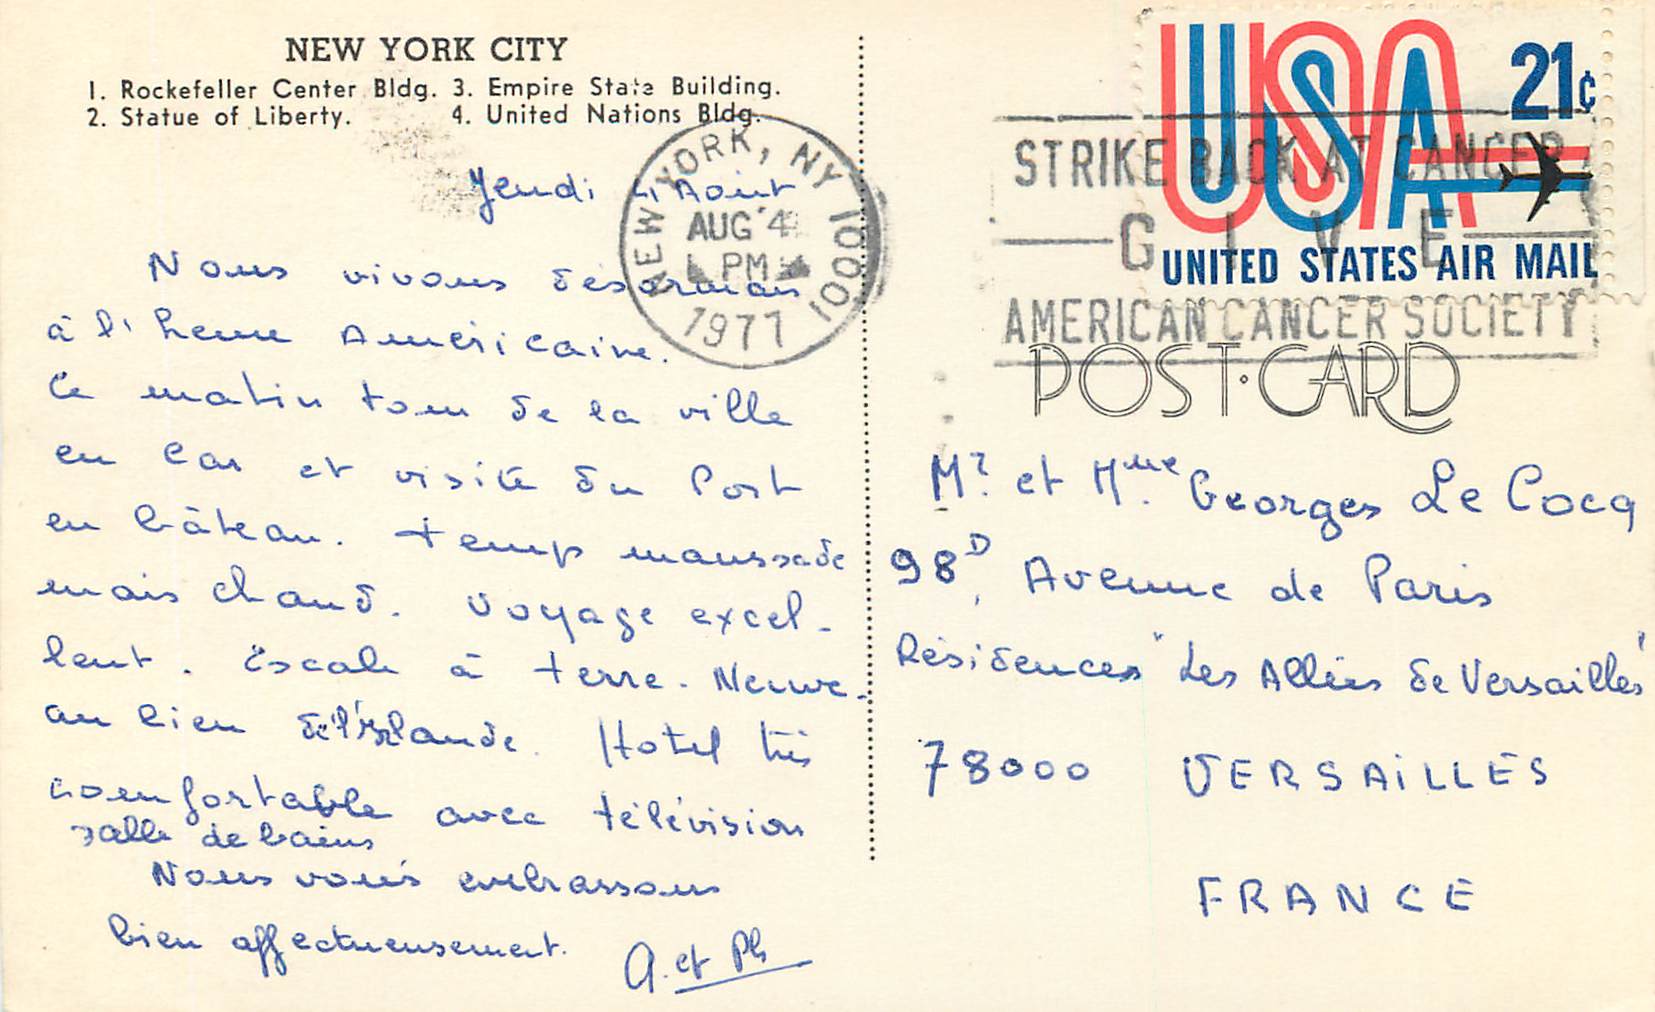 NEW YORK CITY
1. Rockefeller Center Bldg. 3. Empire State Building.
2. Statue of Liberty. 4. United Nations Bldg.
Jeudi 4 Août
Nous vivons désormais
à l'heure Américaine.
Ce matin tour de la ville
en car et visite du Port
en bâteau. temps maussade
mais chaud. Voyage excel-
lent. Escale à terre-Neuve-
au lieu de l'Islande. Hotel très
confortable avec télévision
salle de bains
Nous vous embrassons
bien affectueusement.
A. et Ph
NEW YORK, NY 10001
AUG 4
PM
1977
USA 21¢
UNITED STATES AIR MAIL
STRIKE BACK AT CANCER
GIVE
AMERICAN CANCER SOCIETY
POST·CARD
Mr. et Mme Georges Le Cocq
98D, Avenue de Paris
Résidences "Les Allées de Versailles"
78000 VERSAILLES
FRANCE